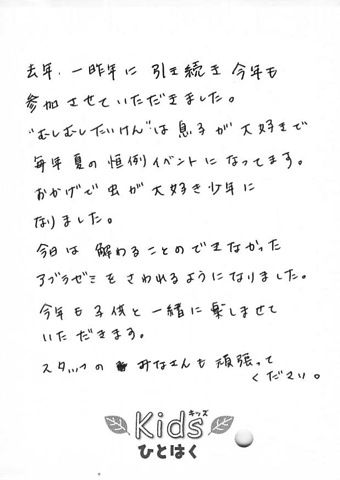 去年、一昨年に引き続き今年も
参加させていただきました。
"むしむしたいけん"は息子が大好きで
毎年夏の恒例イベントになってます。
おかげで虫が大好き少年に
なりました。
今日は触わることのできなかった
アブラゼミをさわれるようになりました。
今年も子供と一緒に楽しませて
いただきます。
スタッフのみなさんも頑張って
ください。
キッズ
Kids
ひとはく